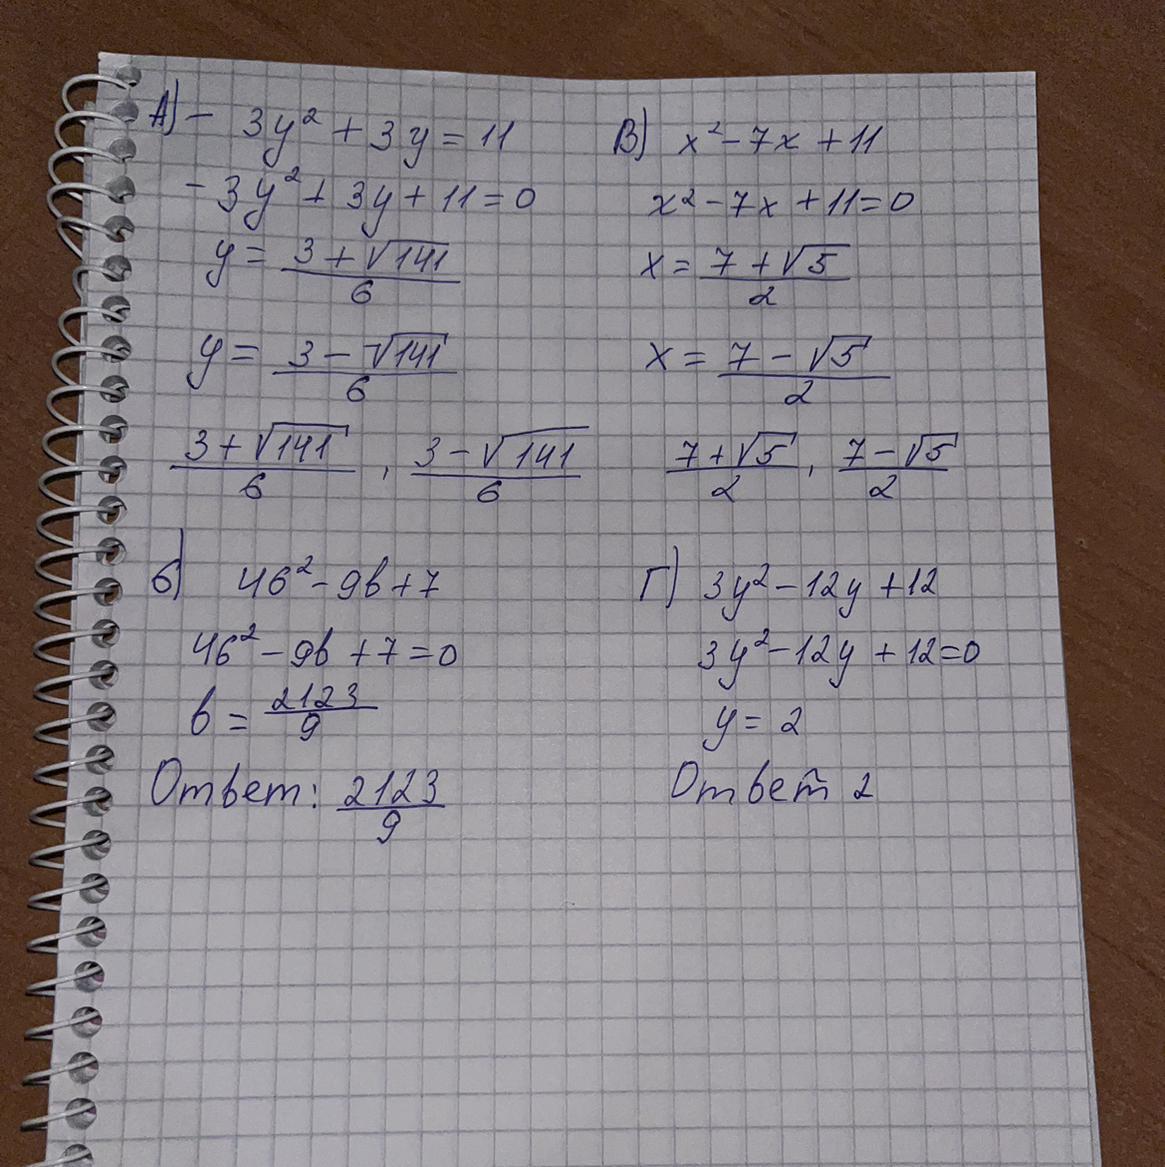 А) - 3y² + 3y = 11
- 3y² + 3y + 11 = 0
y = (3 + √141)/6
y = (3 - √141)/6
(3 + √141)/6 , (3 - √141)/6
В) x² - 7x + 11
x² - 7x + 11 = 0
x = (7 + √5)/2
x = (7 - √5)/2
(7 + √5)/2 , (7 - √5)/2
б) 4б² - 9b + 7
4б² - 9b + 7 = 0
b = 2123/9
Ответ: 2123/9
Г) 3y² - 12y + 12
3y² - 12y + 12 = 0
y = 2
Ответ 2